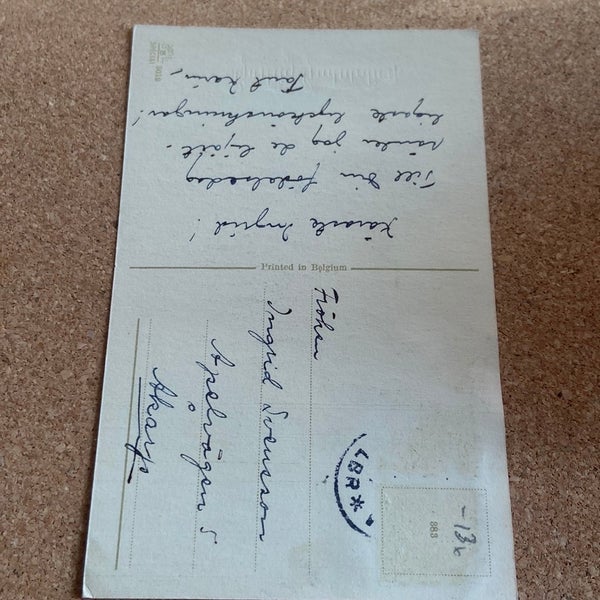 Käraste Ingrid!
Till din födelsedag
sänder jag de hjärt-
ligaste lyckönskningar!
Tant Karin,
Printed in Belgium
Fröken
Ingrid Svensson
Apelvägen 5
Åkarp
883